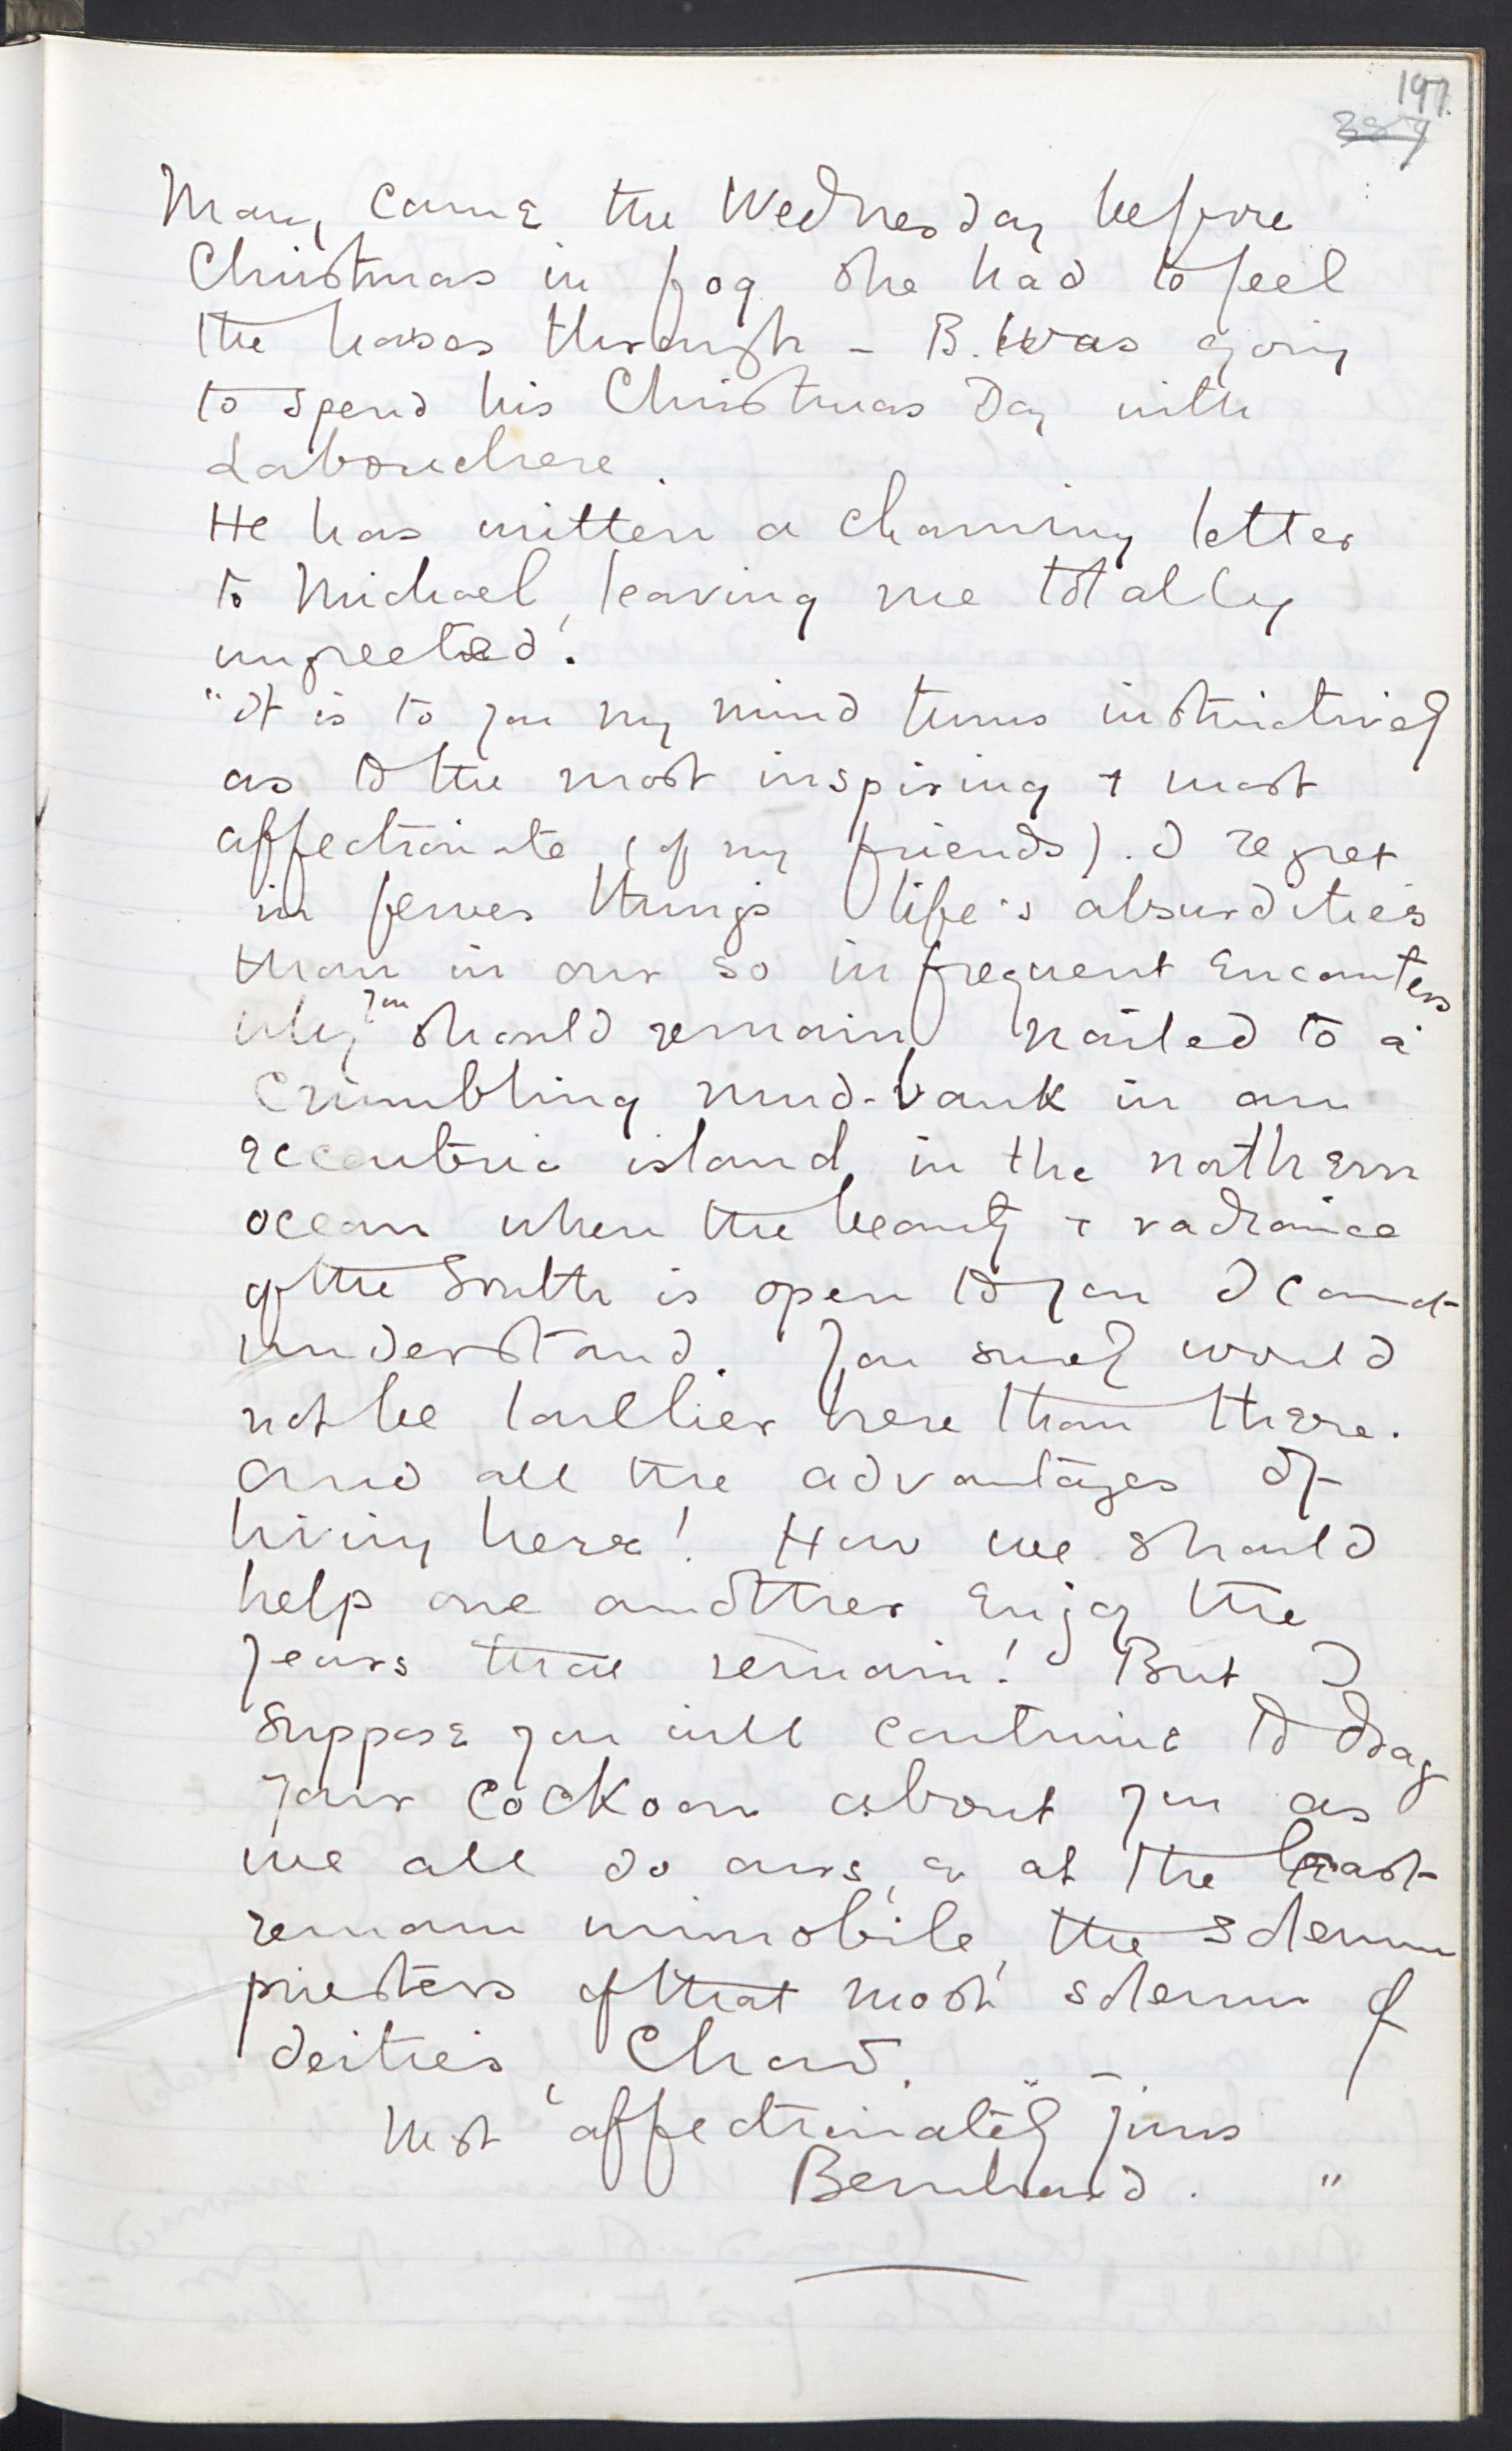 197.
Mary came the Wednesday before
Christmas in fog she had to feel
the horses through - B. was going
to spend his Christmas Day with
Labouchere
He has written a charming letter
to Michael, leaving me totally
ungreeted!
"It is to you my mind turns instinctively
as to the most inspiring & most
affectionate (of my friends). I regret
in fewer things life's absurdities
than in our so infrequent encounters
Why you should remain nailed to a
crumbling mud-bank in an
eccentric island in the northern
ocean when the beauty & radiance
of the South is open to you I cannot
understand. You surely would
not be lonelier here than there.
And all the advantages of
living here! How we should
help one another enjoy the
years that remain! But I
suppose you will continue to drag
your cockoon about you as
we all do ours, & at the least
remain immobile, the solemn
priesters of that most solemn of
deities, Chaos.
Most affectionately yours
Bernhard. "